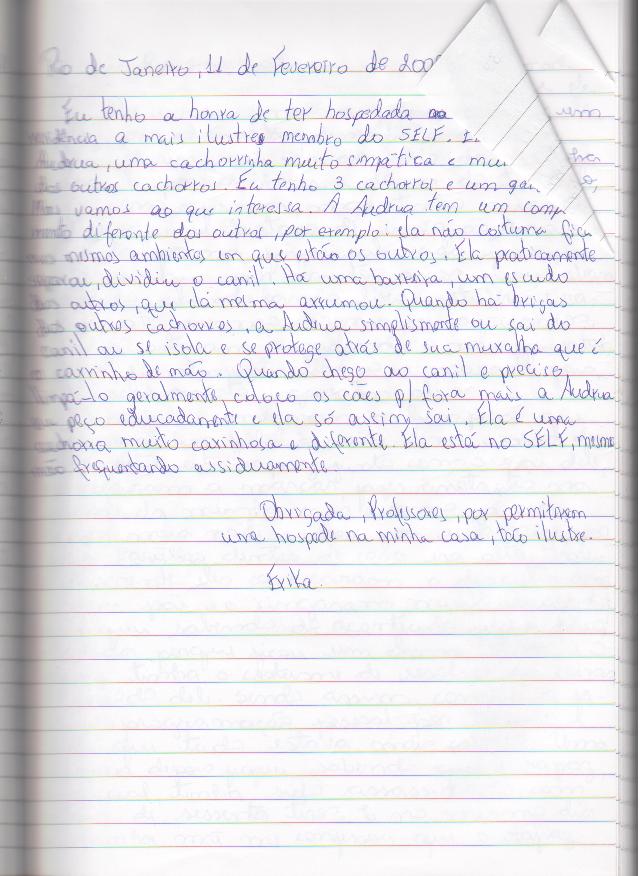 de Janeiro, 11 de Fevereiro de 200
Eu tenho a honra de ter hospedada um
residência a mais ilustres membro do SELF.
Audrua, uma cachorrinha muito simpática e mui
outros cachorros. Eu tenho 3 cachorros e um ga
Mas vamos ao que interessa. A Audrua tem um comp
mento diferente dos outros, por exemplo: ela não costuma fica
mesmos ambientes em que estão os outros. Ela praticamente
, dividiu o canil. Há uma barreira, um escudo
outros, que ela mesma arrumou. Quando há brigas
outros cachorros, a Audrua simplismente ou sai do
canil ou se isola e se protege atrás de sua muralha que é
carrinho de mão. Quando chego ao canil e preciso
limpá-lo geralmente, coloco os cães p/ fora mais a Audrua
peço educadamente e ela só assim sai. Ela é uma
muito carinhosa e diferente. Ela está no SELF, mesmo
frequentando assiduamente.
Obrigada, Professores, por permitirem
uma hospede na minha casa, tão ilustre.
Érika.